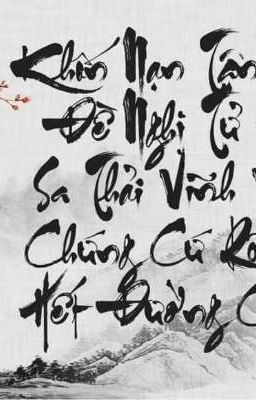 Khốn Nạn Tận
Đề Nghị Tử
Sa Thải Vĩnh
Chứng Cứ Rõ
Hết Đường C